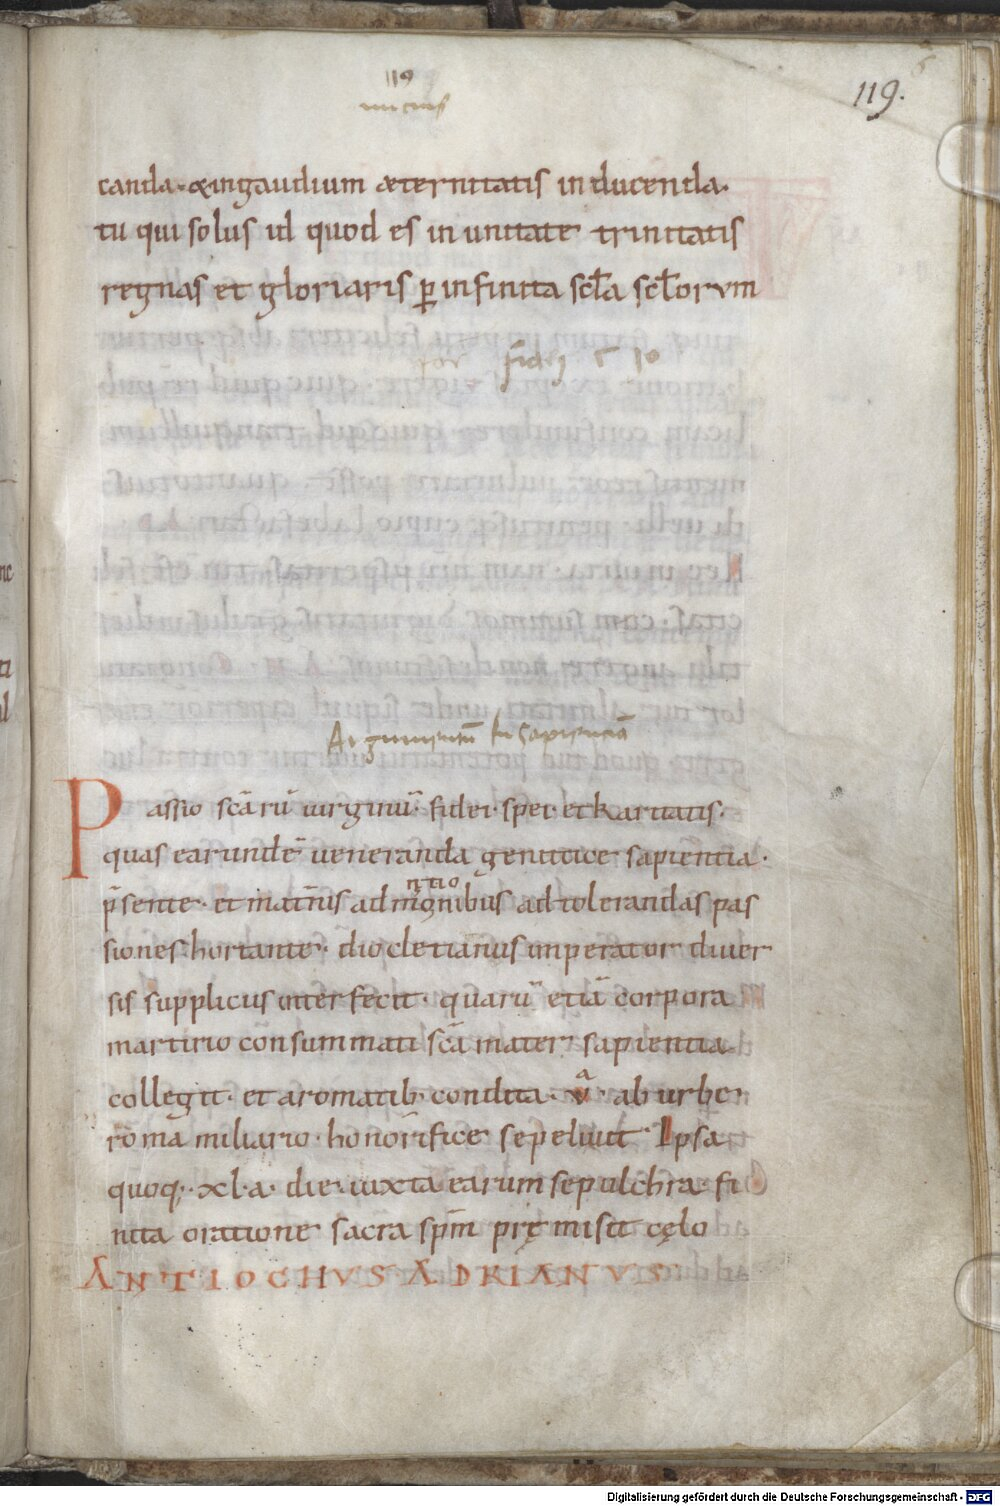 119
119.
canda · & ingaudium æternitatis inducenda ·
tu qui solus id quod es in unitate trinitatis
regnas et gloriaris ꝑ infinita scła scłorum
Argumentū In Sapienciā
Passio scārū uirginū · fidei · spei · et karitatis ·
quas earundē ueneranda genitrice sapientia ·
p̄sente · et mat̄nis admonibus ad tolerandas pas
siones hortante · diocletianus imperator diuer
sis suppliciis interfecit · quarū etiā corpora
martirio consummati scā mater sapientia
collegit · et aromatib · condita · v · ab urbe
a
roma miliario · honorifice sepeliuit · Ipsa
quoq; · xl · a · die · iuxta earum sepulchra · fi
nita oratione sacra spm̄ pręmisit cęlo
ANTIOCHVS ADRIANVS
Digitalisierung gefördert durch die Deutsche Forschungsgemeinschaft - DFG